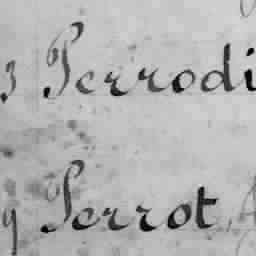 3 Perrodi
9 Perrot